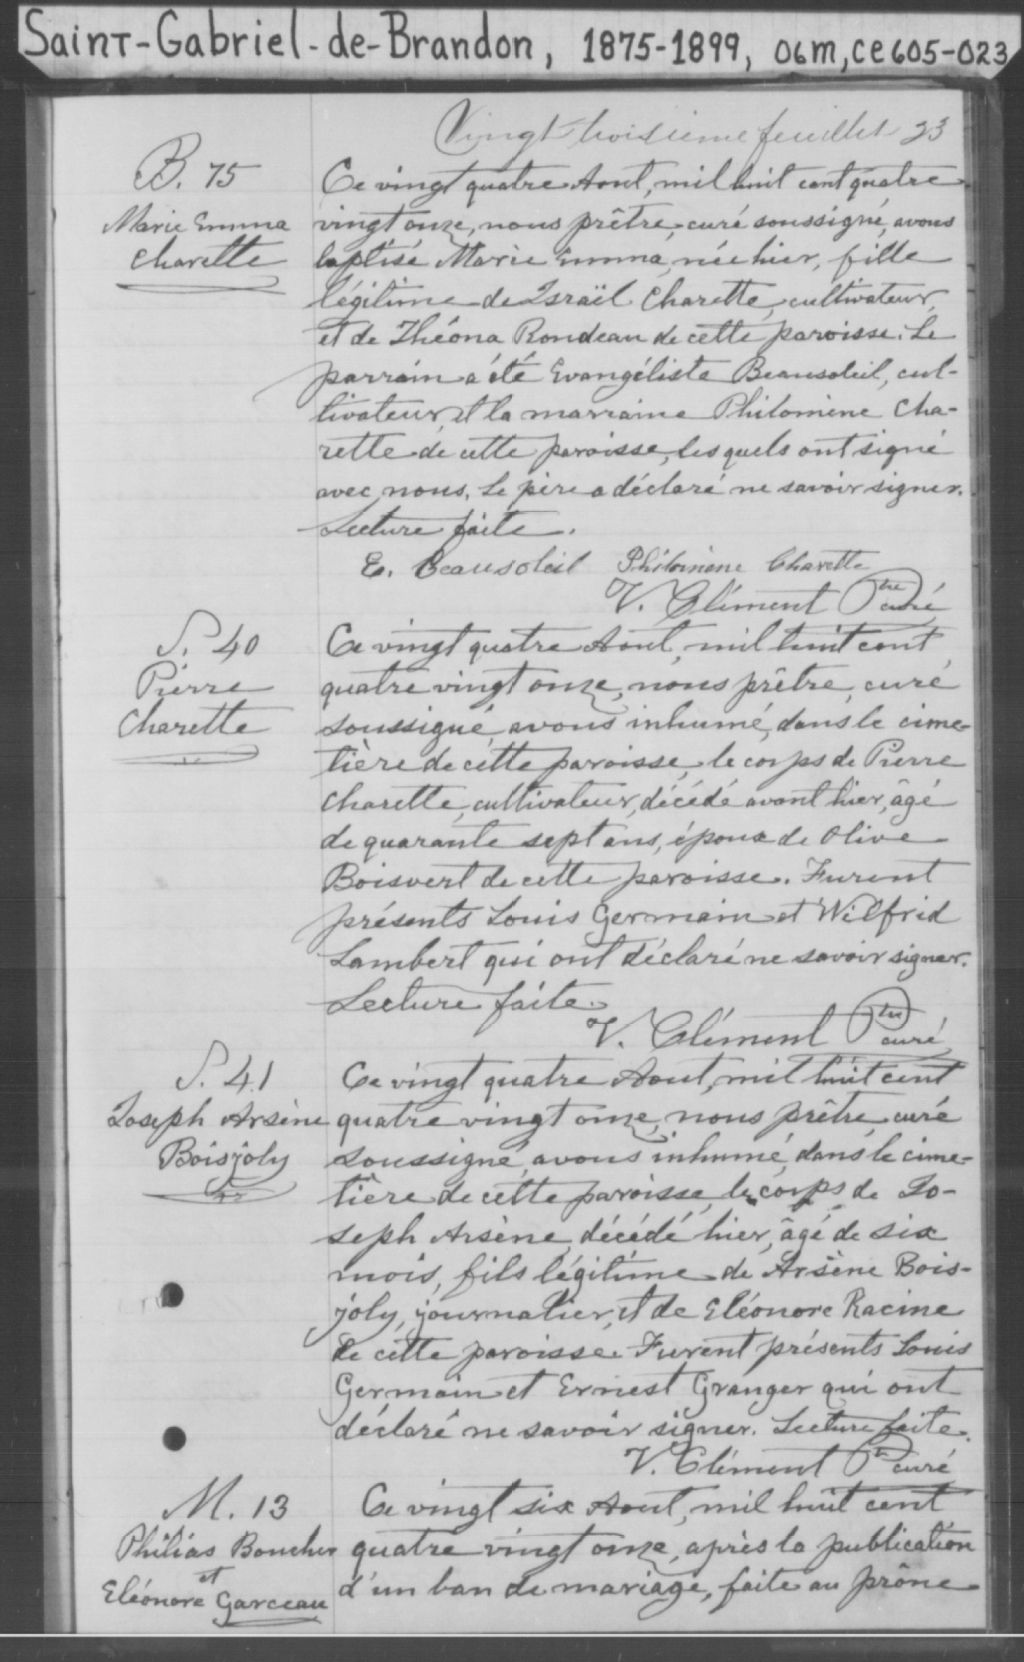 Saint-Gabriel-de-Brandon, 1875-1899, 06m, ce605-023
Vingt troisième feuillet 23
B. 75
Marie Emma
Charette
Ce vingt quatre Aout, mil huit cent quatre
vingt onze, nous prêtre, curé soussigné, avons
baptisé Marie Emma, née hier, fille
légitime de Israël Charette, cultivateur,
et de Théona Rondeau de cette paroisse. Le
parrain a été Evangéliste Beausoleil, cul-
tivateur, et la marraine Philomène Cha-
rette de cette paroisse, lesquels ont signé
avec nous. Le père a déclaré ne savoir signer.
Lecture faite.
E. Beausoleil Philomène Charette
V. Clément Ptre curé
S. 40
Pierre
Charette
Ce vingt quatre Aout, mil huit cent
quatre vingt onze, nous prêtre, curé
soussigné, avons inhumé, dans le cime-
tière de cette paroisse, le corps de Pierre
Charette, cultivateur, décédé avant hier, âgé
de quarante sept ans, époux de Olive
Boisvert de cette paroisse. Furent
présents Louis Germain et Wilfrid
Lambert qui ont déclaré ne savoir signer.
Lecture faite.
V. Clément Ptre curé
S. 41
Joseph Arsène
Boisjoly
Ce vingt quatre Aout, mil huit cent
quatre vingt onze, nous prêtre, curé
soussigné, avons inhumé, dans le cime-
tière de cette paroisse, le corps de Jo-
seph Arsène, décédé hier, âgé de six
mois, fils légitime de Arsène Bois-
joly, journalier, et de Eléonore Racine
de cette paroisse. Furent présents Louis
Germain et Ernest Granger qui ont
déclaré ne savoir signer. Lecture faite.
V. Clément Ptre curé
M. 13
Philias Boucher
et
Eléonore Garceau
Ce vingt six Aout, mil huit cent
quatre vingt onze, après la publication
d'un ban de mariage, faite au prône